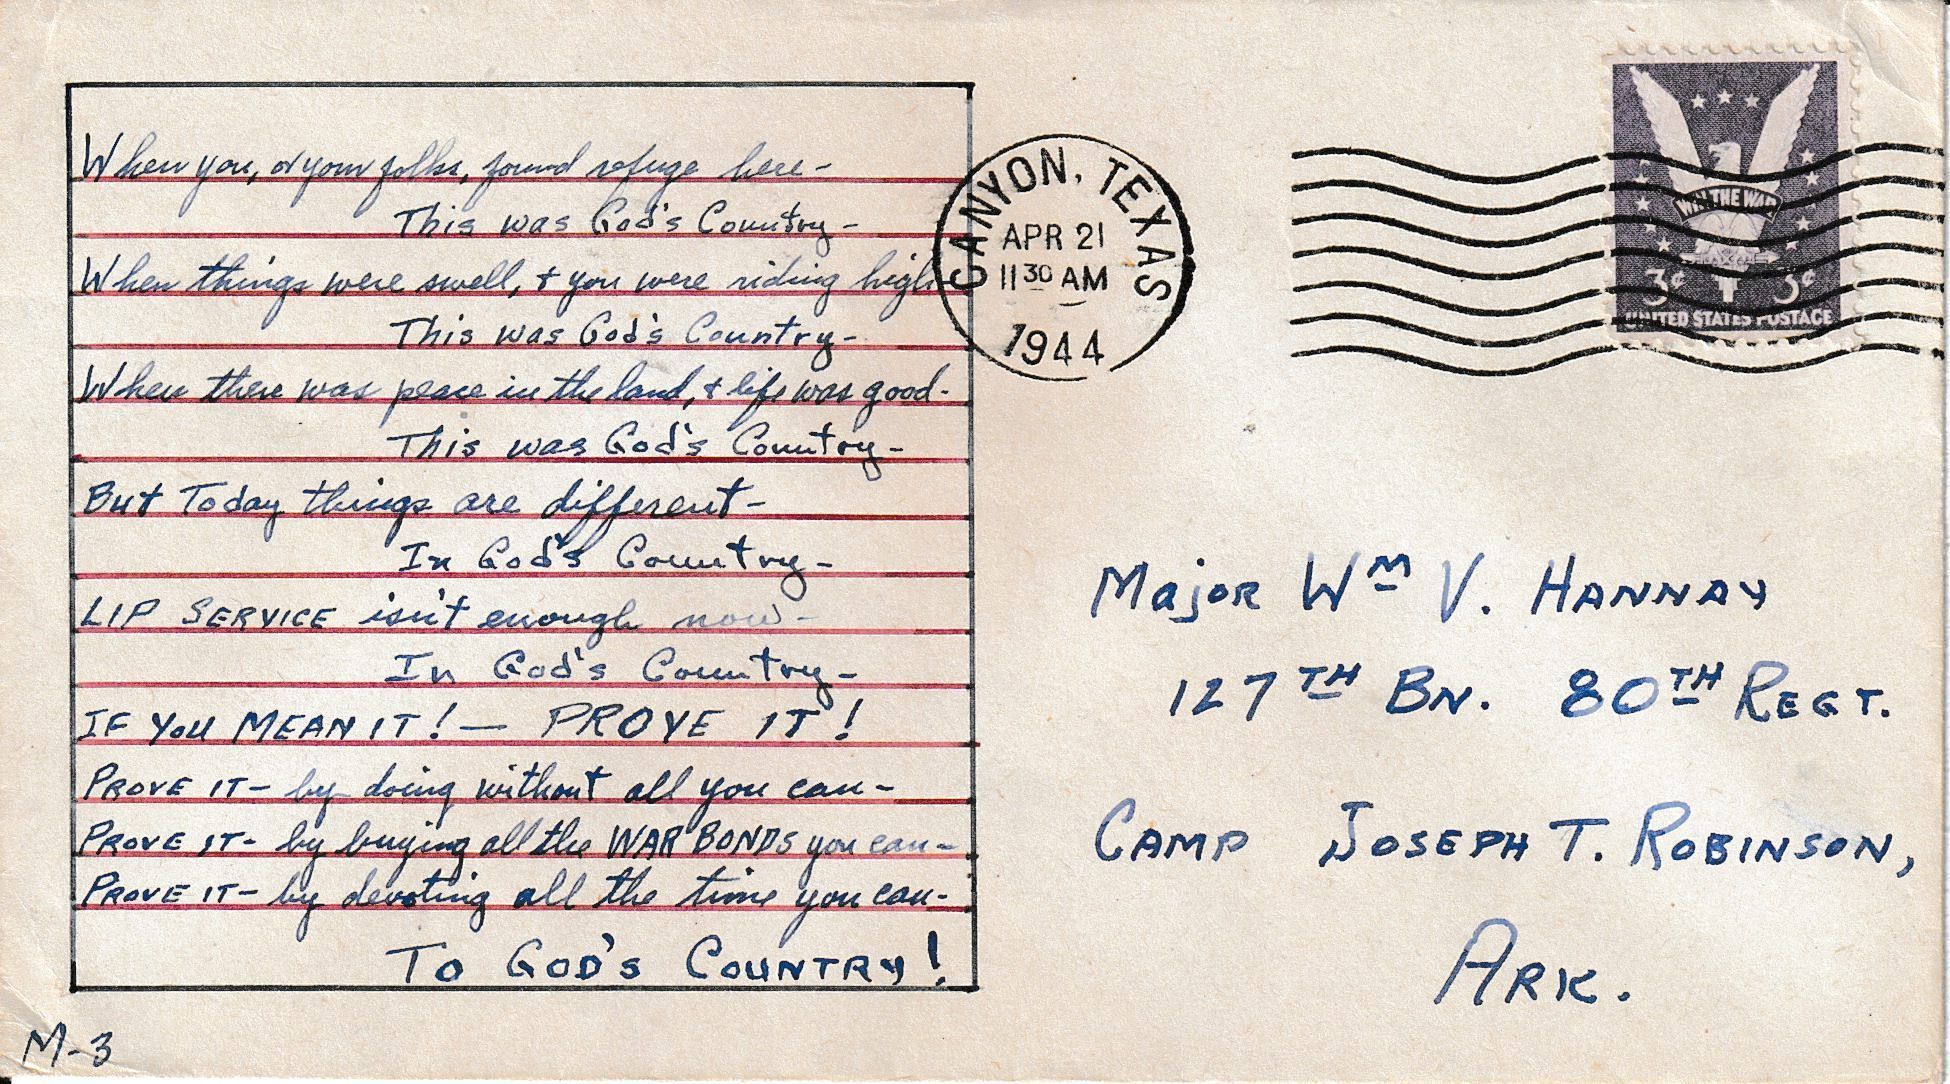 When you, or your folks, found refuge here-
This was God's Country-
When things were swell, & you were riding high-
This was God's Country-
When there was peace in the land, & life was good-
This was God's Country-
But Today things are different-
In God's Country-
LIP SERVICE isn't enough now-
In God's Country-
IF YOU MEAN IT! — PROVE IT!
PROVE IT- by doing without all you can-
PROVE IT- by buying all the WAR BONDS you can-
PROVE IT- by devoting all the time you can-
TO GOD'S COUNTRY!
M-3
CANYON, TEXAS
APR 21
11 30 AM
1944
WIN THE WAR
3¢ 3¢
UNITED STATES POSTAGE
Major Wm V. HANNAY
127TH BN. 80TH REGT.
CAMP JOSEPH T. ROBINSON,
ARK.